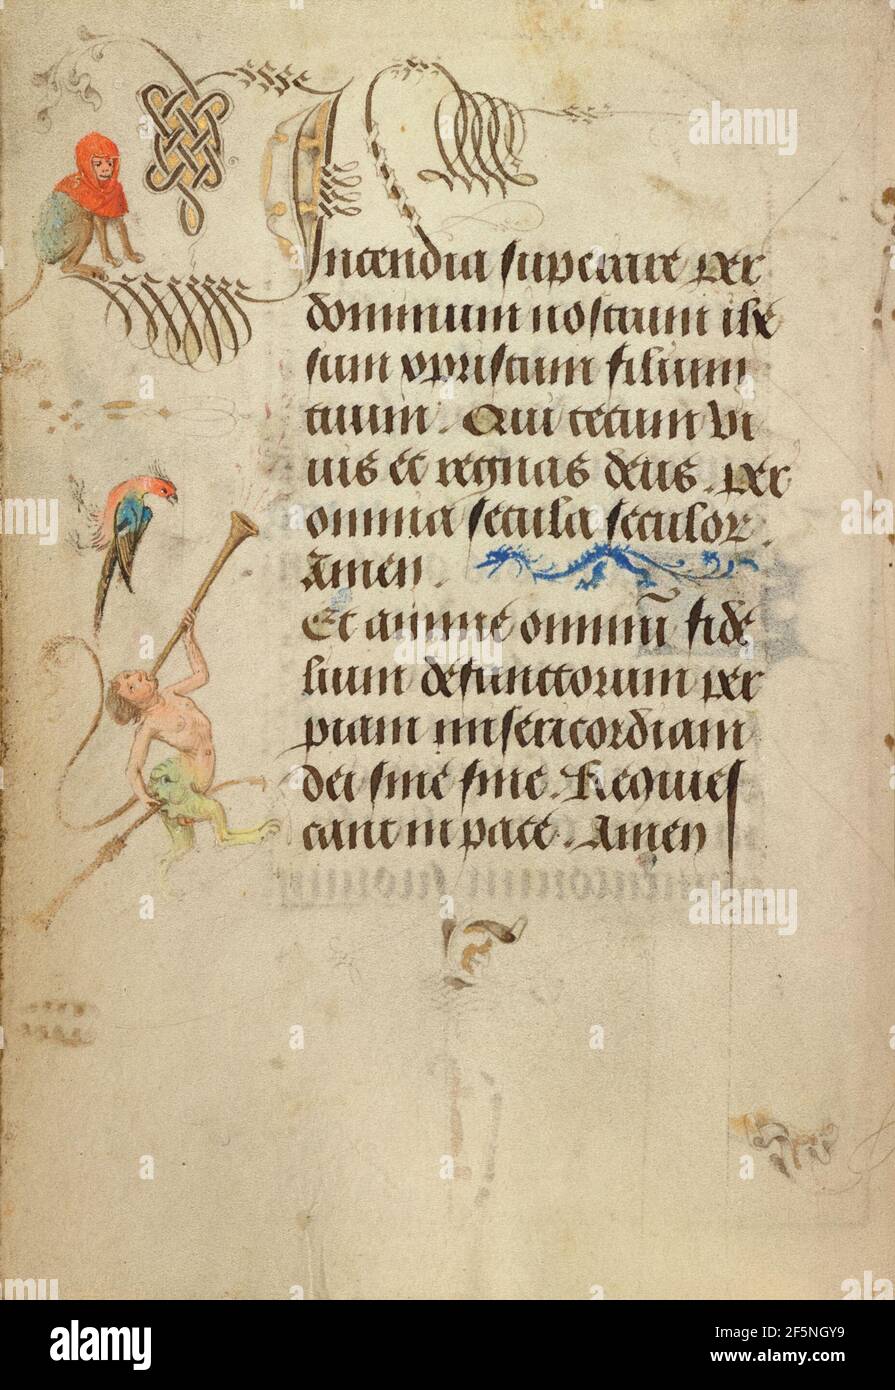 Incendia superare per
dominum nostrum ihe
sum xpristum filium
tuum. Qui tecum vi
uis et regnas deus. per
omnia secula seculor.
Amen.
Et anime omniū fide
lium defunctorum per
piam misericordiam
dei sine fine. Requies
cant in pace. Amen
alamy
Image ID: 2F5NGY9
www.alamy.com